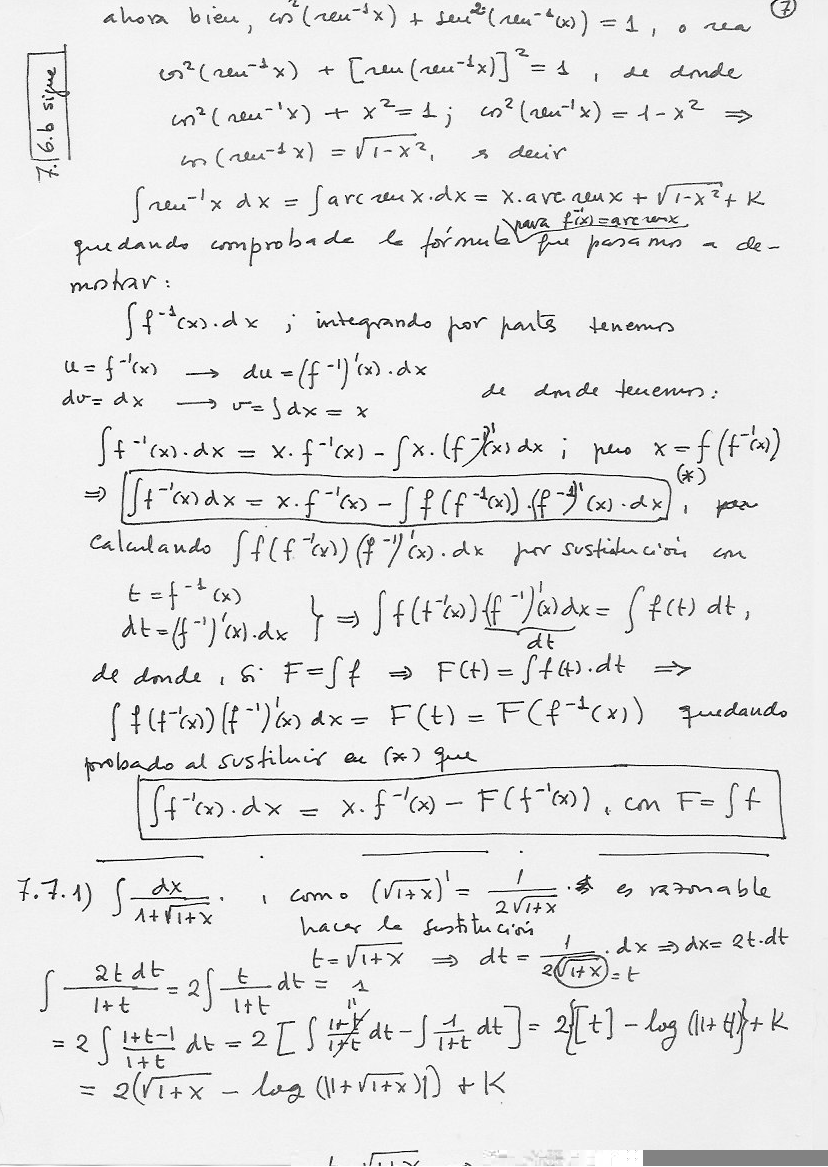 7
ahora bien, cos²(sen⁻¹x) + sen²(sen⁻¹(x)) = 1, o sea
7.6.b sigue
cos²(sen⁻¹x) + [sen(sen⁻¹x)]² = 1, de donde
cos²(sen⁻¹x) + x² = 1; cos²(sen⁻¹x) = 1-x² ⇒
cos(sen⁻¹x) = √(1-x²), es decir
∫sen⁻¹x dx = ∫arc sen x·dx = x·arc sen x + √(1-x²) + K
para f⁻¹(x)=arc sen x
quedando comprobada la fórmula que pasamos a de-
mostrar:
∫f⁻¹(x)·dx ; integrando por partes tenemos
u = f⁻¹(x) → du = (f⁻¹)'(x)·dx
dv = dx → v = ∫dx = x de donde tenemos:
∫f⁻¹(x)·dx = x·f⁻¹(x) - ∫x·(f⁻¹)'(x)dx ; pero x = f(f⁻¹(x))
(*)
⇒ ∫f⁻¹(x)dx = x·f⁻¹(x) - ∫f(f⁻¹(x))·(f⁻¹)'(x)·dx ,
calculando ∫f(f⁻¹(x))(f⁻¹)'(x)·dx por sustitución con
t = f⁻¹(x)
dt = (f⁻¹)'(x)·dx } ⇒ ∫f(f⁻¹(x))(f⁻¹)'(x)dx = ∫f(t) dt,
dt
de donde, si F = ∫f ⇒ F(t) = ∫f(t)·dt ⇒
∫f(f⁻¹(x))(f⁻¹)'(x)dx = F(t) = F(f⁻¹(x)) quedando
probado al sustituir en (*) que
∫f⁻¹(x)·dx = x·f⁻¹(x) - F(f⁻¹(x)), con F = ∫f
7.7.1) ∫ dx/(1+√(1+x)) · , como (√(1+x))' = 1/(2√(1+x)) · es razonable
hacer la sustitución
t = √(1+x) ⇒ dt = 1/(2√(1+x))·dx ⇒ dx = 2t·dt
= t
∫ 2t dt/(1+t) = 2∫ t/(1+t) dt =
1
= 2∫ (1+t-1)/(1+t) dt = 2[∫ (1+t)/(1+t) dt - ∫ 1/(1+t) dt] = 2{[t] - log(|1+t|)} + K
= 2(√(1+x) - log(|1+√(1+x)|)) + K